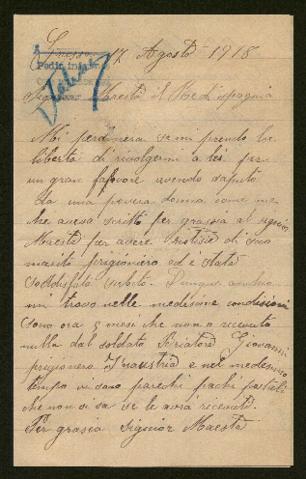 17 Agosto 1918
Maestà il Re di Spagnia
Mi perdonera se mi prendo la
libertà di rivolgermi a lei per
un gran fafvore avendo saputo
da una povera donna come me
che aveva scritto per grassia al signior
Maestà per avere notisie di suo
marito prigioniero ed è stata
soddisfata subito. Dunque anchio
mi trovo nelle medesime condissioni
sono ora 5 mesi che non o ricevuto
nulla dal soldato Giovanni
prigioniero Inaustria e nel medesimo
tempo vi sono parechi pachi postali
che non si sa se le avrà ricevuti.
Per grasia Signior Maestà